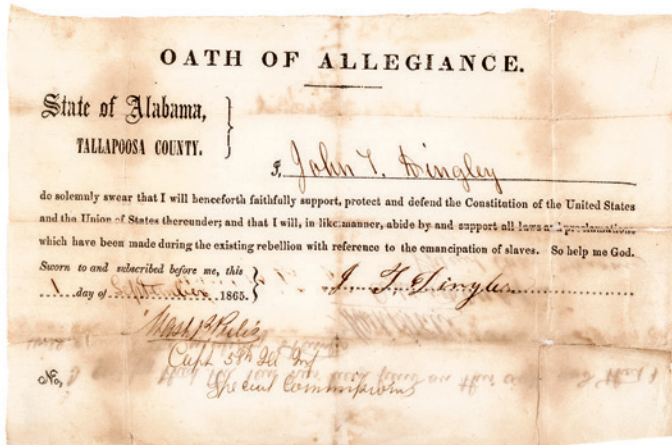 OATH OF ALLEGIANCE.
State of Alabama,
TALLAPOOSA COUNTY.
I, John T. Dingley
do solemnly swear that I will henceforth faithfully support, protect and defend the Constitution of the United States
and the Union of States thereunder; and that I will, in like manner, abide by and support all laws and proclamations
which have been made during the existing rebellion with reference to the emancipation of slaves. So help me God.
Sworn to and subscribed before me, this
J. T. Dingley
1 day of September 1865.
Capt 58th Ill Inf
Special Commissioner
No,